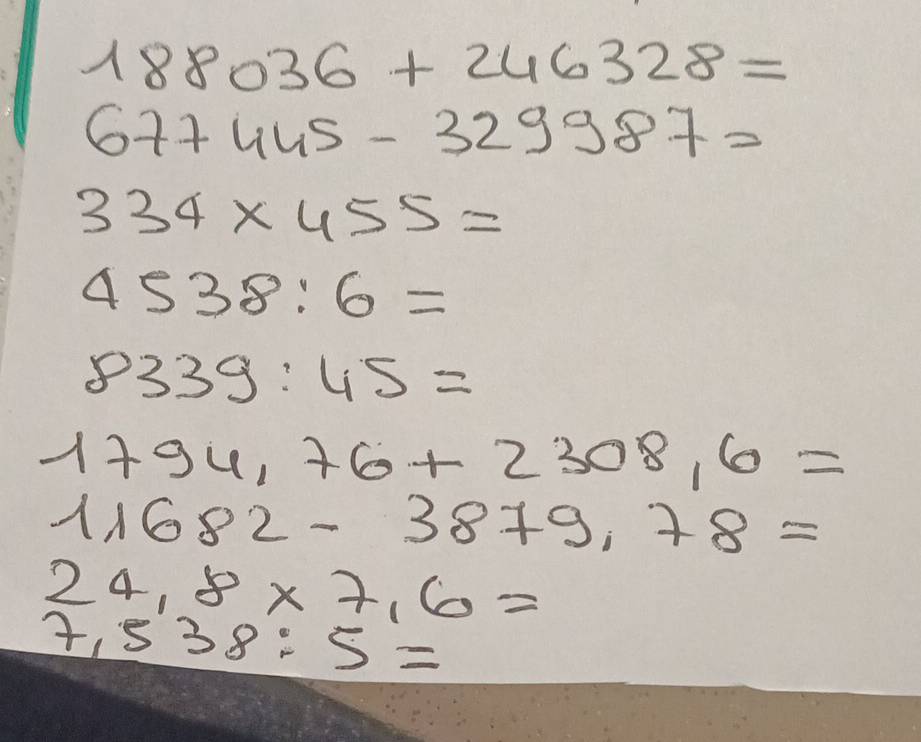 188036 + 246328 =
677445 - 329987 =
334 x 455 =
4538 : 6 =
8339 : 45 =
1794,76 + 2308,6 =
11682 - 3879,78 =
24,8 x 7,6 =
7,538 : 5 =